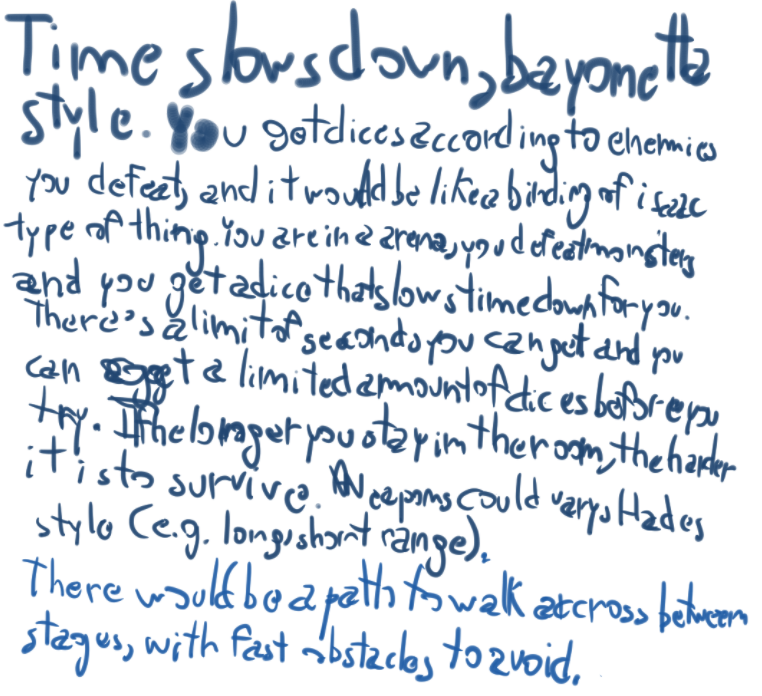 Time slows down, bayonetta
style. You get dices according to enemies
you defeat, and it would be like a binding of isaac
type of thing. You are in a arena, you defeat monsters
and you get a dice that slows time down for you.
There's a limit of seconds you can get and you
can get a limited amount of dices before you
try. The longer you stay in the room, the harder
it is to survive. Weapons could vary, Hades
style (e.g. long, short range).
There would be a path to walk accross between
stages, with fast obstacles to avoid.